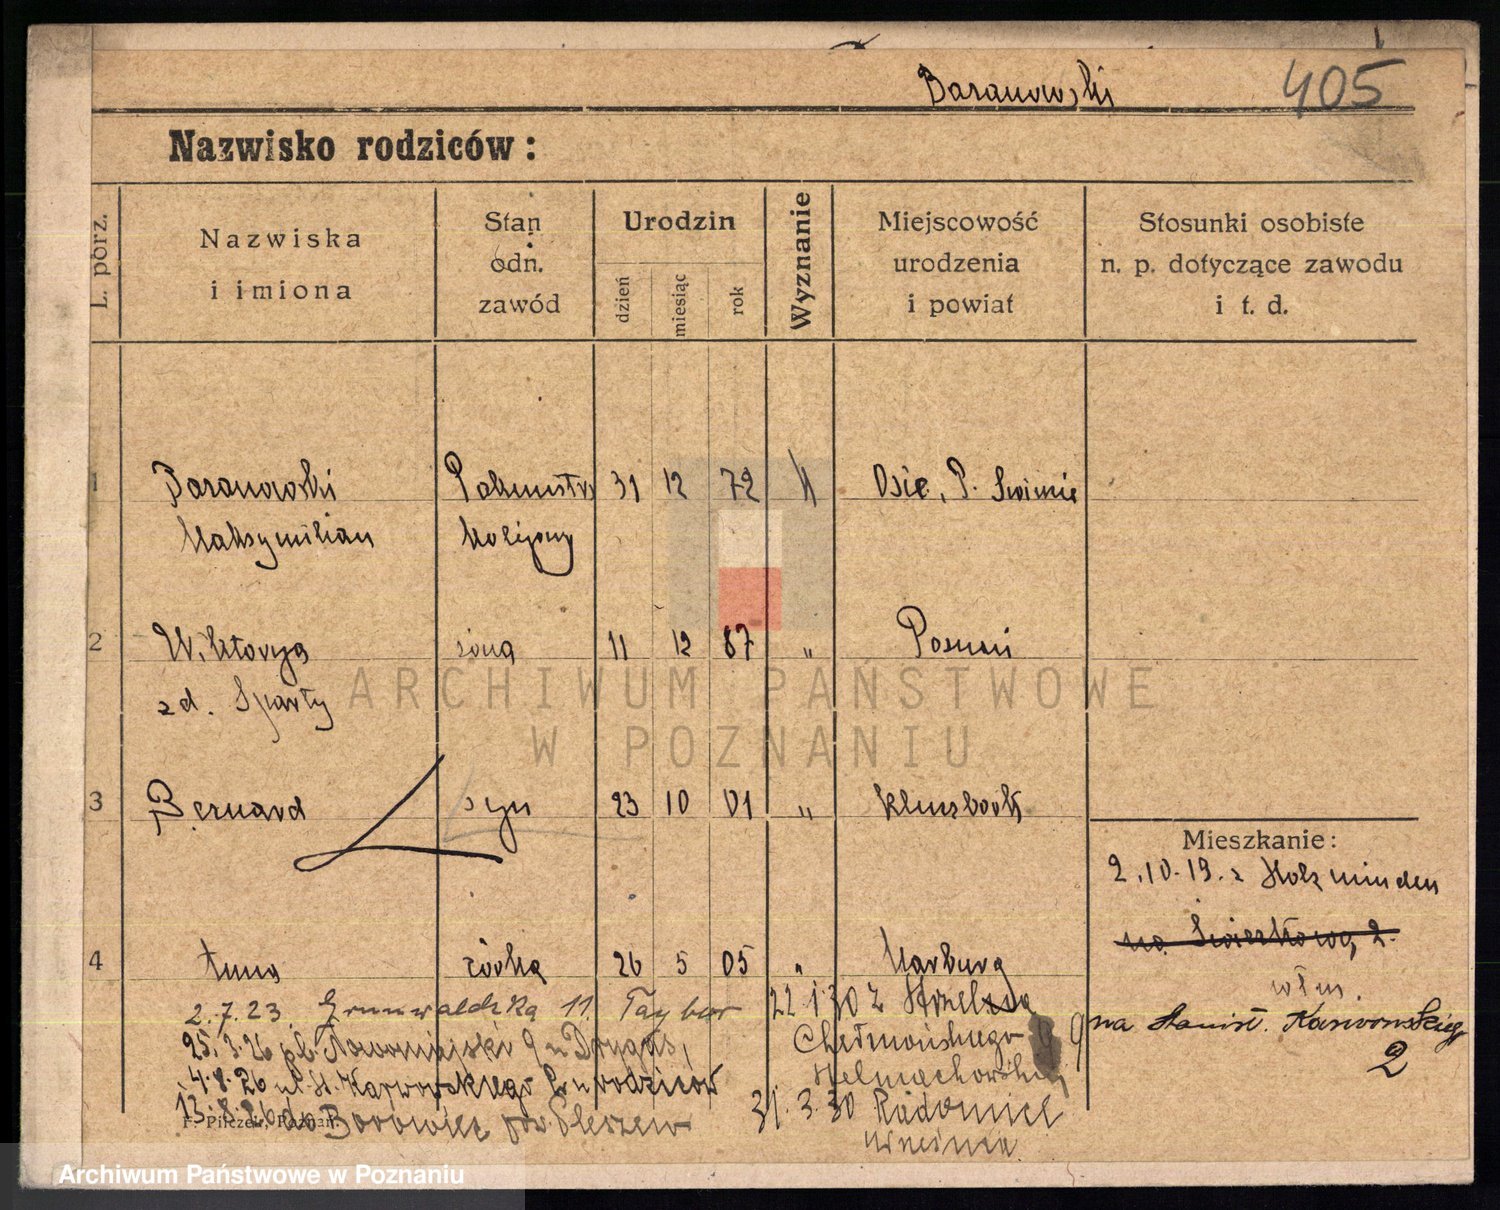 Baranowski
405
Nazwisko rodziców:
L. porz.
Nazwiska
i imiona
Stan
odn.
zawód
Urodzin
dzień
miesiąc
rok
Wyznanie
Miejscowość
urodzenia
i powiat
Stosunki osobiste
n. p. dotyczące zawodu
i t. d.
1 Baranowski 31 12 72 Osie, P. Swiecie
Maksymilian
2 Wiktorya żona 11 12 87 " Poznań
zd. Sparty
3 Bernard syn 23 10 01 "
4 Anna córka 26 5 05 " Marburg
Mieszkanie:
2.10.19. z Holzminden
na 2.
na Stanisł. Karwowskiego
2
2.7.23. Grunwaldzka 11. 22 1 30 z
25.3.26 pl. Nowomiejski 9
Chełmońskiego 9
4.8.26 ul. St. Karwowskiego 2 u rodziców
13.8.26 do Borowiec pow. Pleszew
31.3.30
F. Pilczek, Poznań.
ARCHIWUM PAŃSTWOWE
W POZNANIU
Archiwum Państwowe w Poznaniu